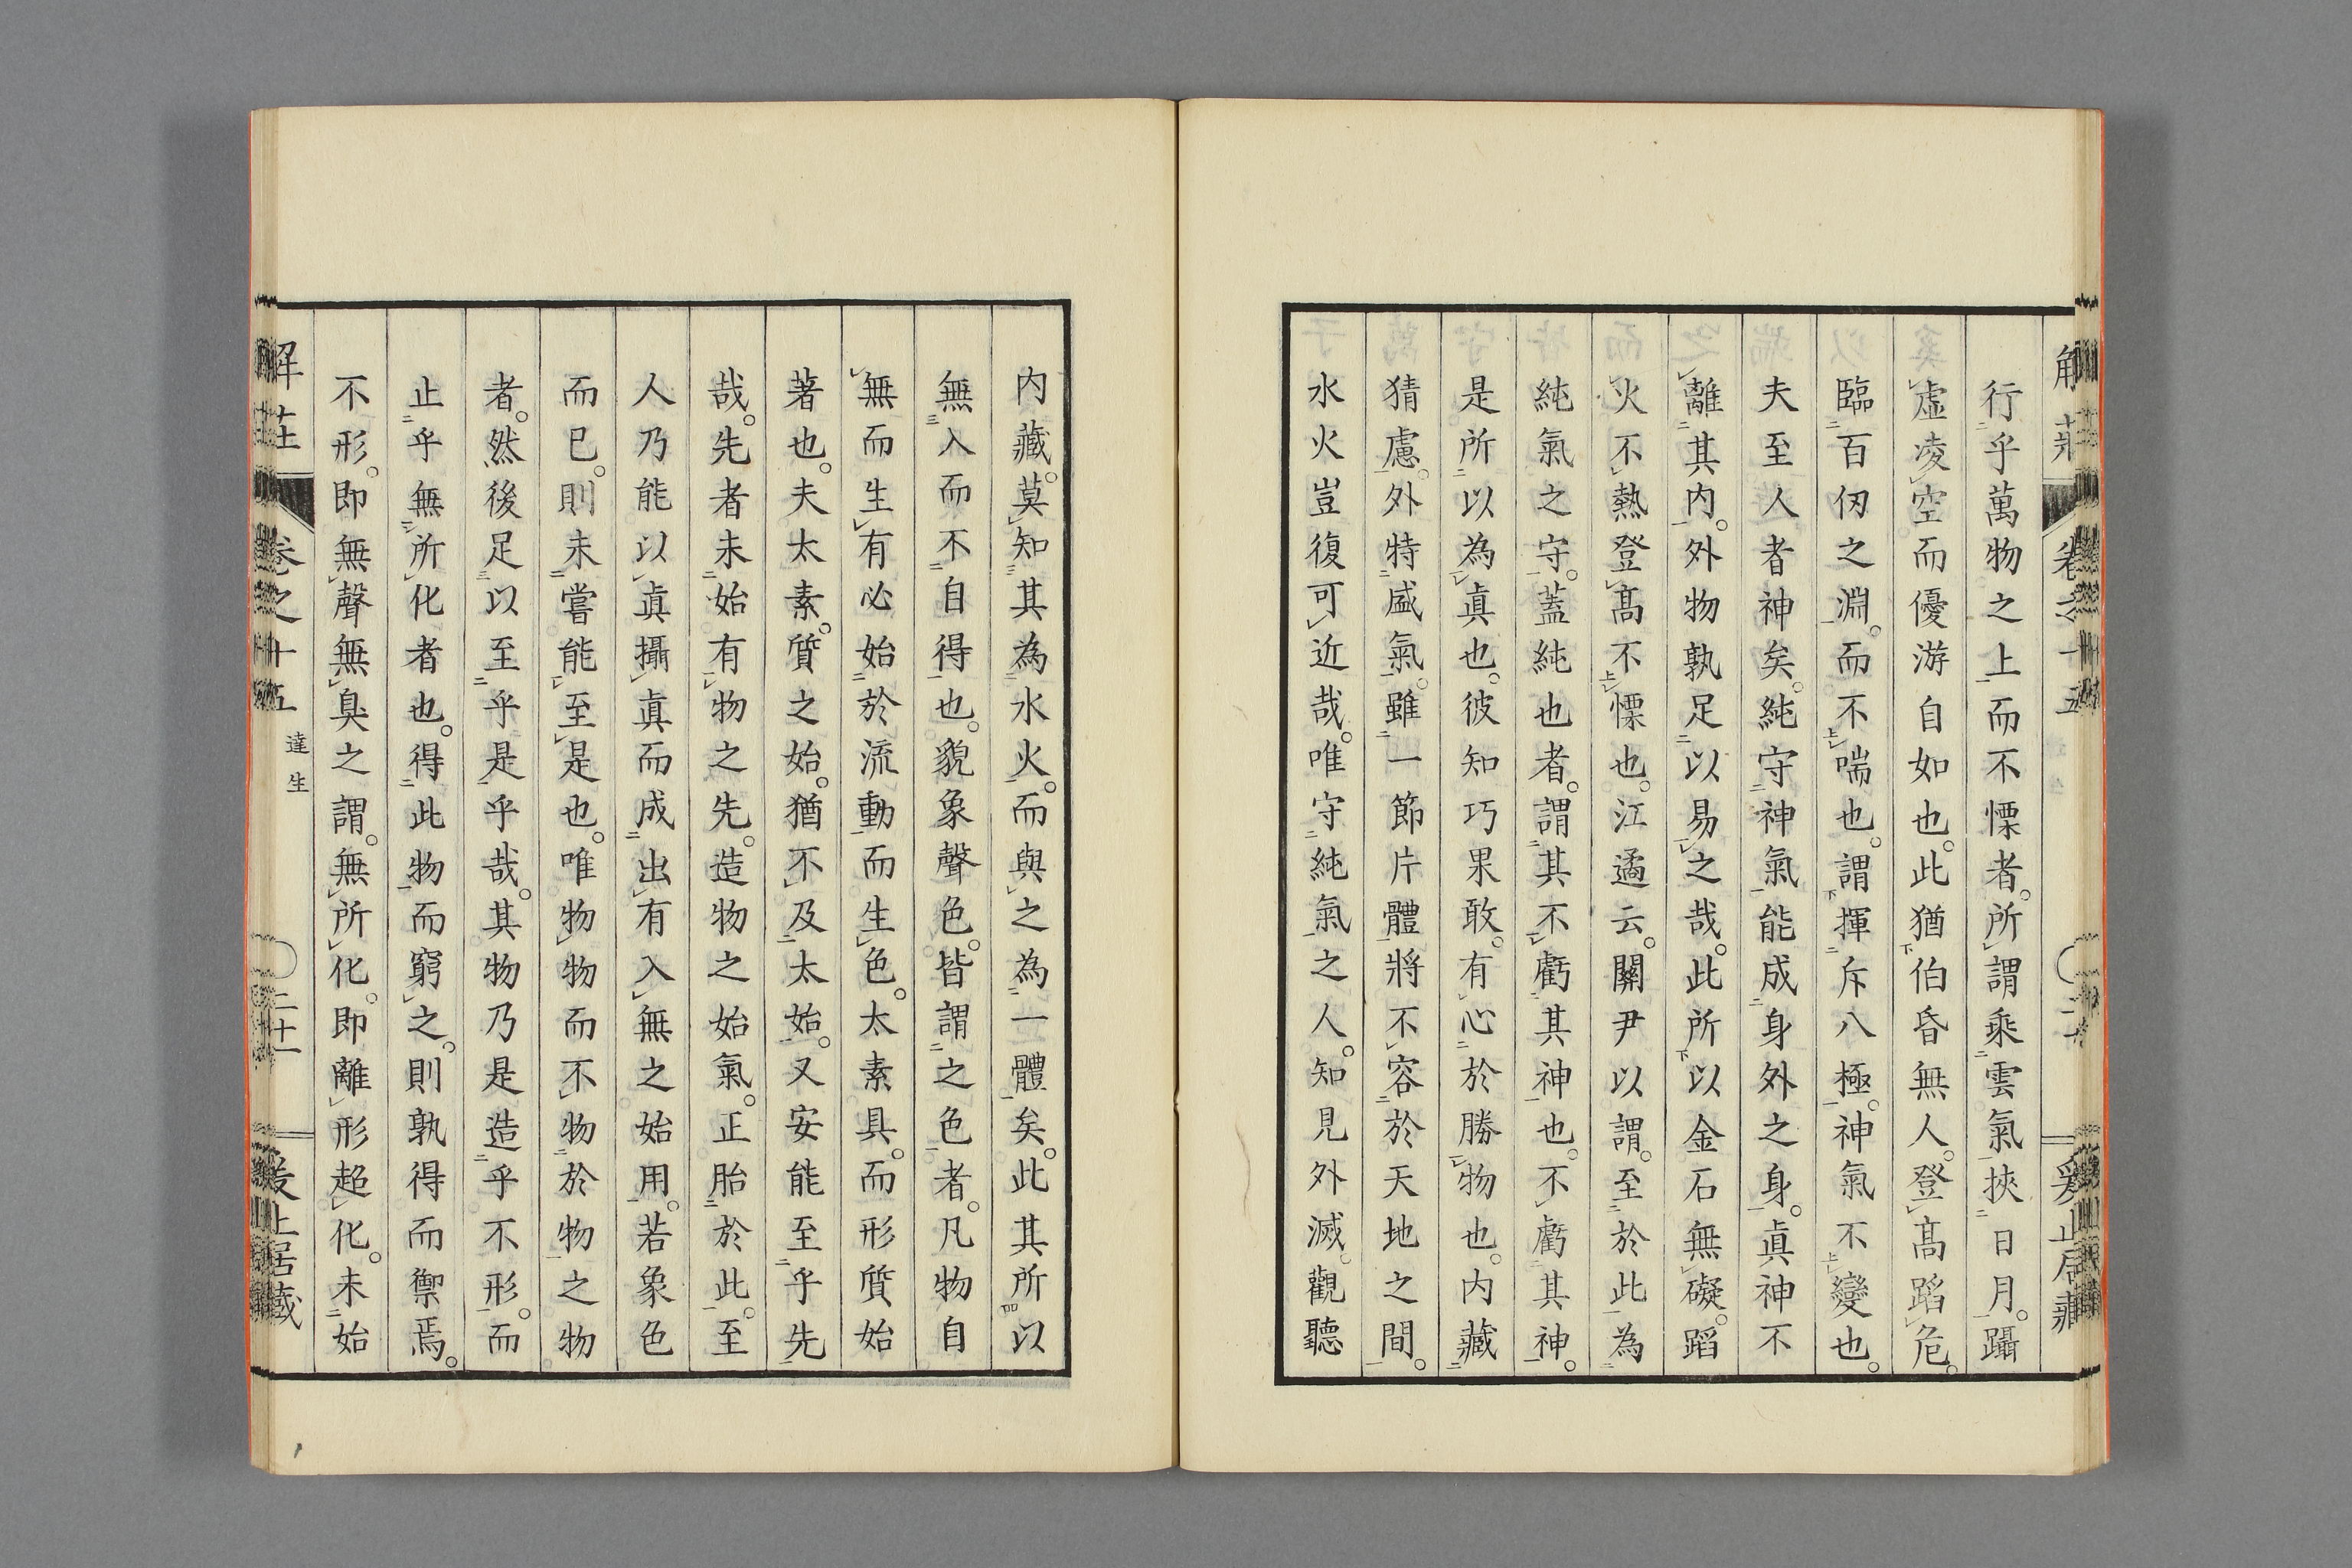 行乎萬物之上而不慄者。所謂乘雲氣挾日月。躡
虛凌空而優游自如也。此猶伯昏無人。登高蹈危。
臨百仞之淵。而不喘也。謂揮斥八極。神氣不變也。
夫至人者神矣。純守神氣能成身外之身。眞神不
離其内。外物孰足以易之哉。此所以金石無礙。蹈
火不熱登高不慄也。江遹云。關尹以謂。至於此為
純氣之守。蓋純也者。謂其不虧其神也。不虧其神。
是所以為眞也。彼知巧果敢。有心於勝物也。内藏
猜慮。外特盛氣。雖一節片體將不容於天地之間。
水火豈復可近哉。唯守純氣之人。知見外滅。觀聽
内藏。莫知其為水火。而與之為一體矣。此其所以
無入而不自得也。貌象聲色。皆謂之色者。凡物自
無而生有必始於流動而生色。太素具。而形質始
著也。夫太素。質之始。猶不及太始。又安能至乎先
哉。先者未始有物之先。造物之始氣。正胎於此。至
人乃能以眞攝眞而成出有入無之始用。若象色
而已。則未嘗能至是也。唯物物而不物於物之物
者。然後足以至乎是乎哉。其物乃是造乎不形。而
止乎無所化者也。得此物而窮之。則孰得而禦焉。
不形。即無聲無臭之謂。無所化。即離形超化。未始
解莊
卷之十五
達生
二十一
止居藏